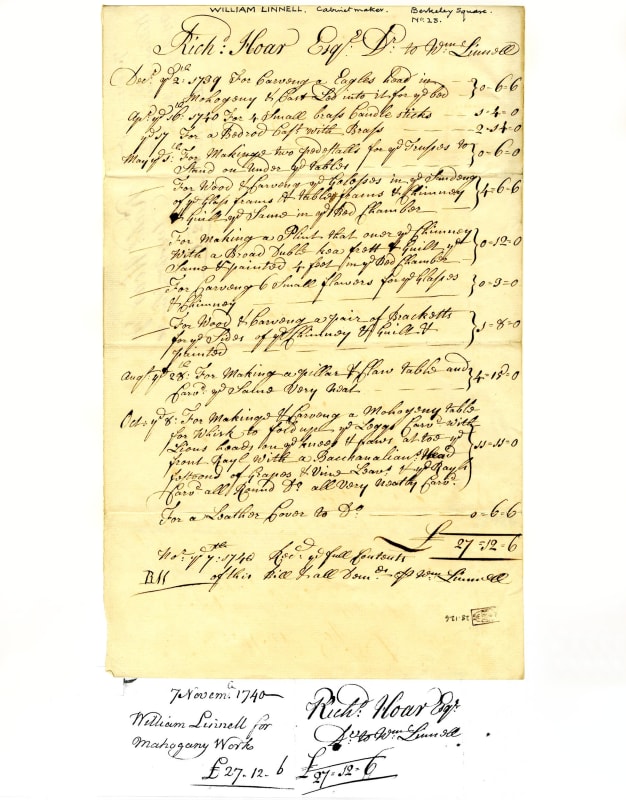 WILLIAM LINNELL, Cabinet maker. Berkeley Square.
No. 28.
Richd. Hoar Esqr. Dr. to Wm. Linnell
Decr. ye 2th: 1739 For Carveng a Eagles head in
Mohogeny & Cast Led into it for ye bed } 0=6=6
Apr. ye 16th: 1740 For 4 Small brass Candle sticks 1=4=0
ye 17 For a Bedrod Cast with Brass 2=14=0
May ye 5th: For Makinge two pedestalls for ye Trusses to
Stand on Under ye tables } 0=6=0
For Wood & Carveng ye in ye
of ye Glass frams & table frams & Chimney
& Guilt ye Same in ye Bed Chamber } 4=6=6
For Making a Plint that over ye Chimney
With a Broad Duble frett & Guilt ye
Same & painted 4 feet in ye Bed Chamber } 0=12=0
For Carveng 6 Small flowers for ye Glasses
& Chimney } 0=9=0
For Wood & Carveng a pair of Bracketts
for ye Sides of ye Chimney & Guilt &
painted } 1=8=0
Augt. ye 28th: For Making a pillar & Claw table and
Carv. ye Same Very Neat } 4=15=0
Oct: ye 8: For Makinge & Carveng a Mohogeny table
for Whisk to fold up ye Leggs Carv. with
Lions heads on ye knees & paws at toe ye
front Rayl With a Bacchanalian Head
festoons of Grapes & Vine Leavs & ye Rayls
Carv. all Round Do. all Very Neatly Carv. } 11=11=0
For a Leather Cover to Do. 0=6=6
£ 27=12=6
Nov. ye 7th: 1740 Recd. ye full Contents
of this Bill & all Demds. Wm. Linnell
28·126
7 Novemr. 1740
William Linnell for
Mahogany Work
£27-12-6
Richd. Hoar Esqr.
Dr. to Wm. Linnell
£27=12=6